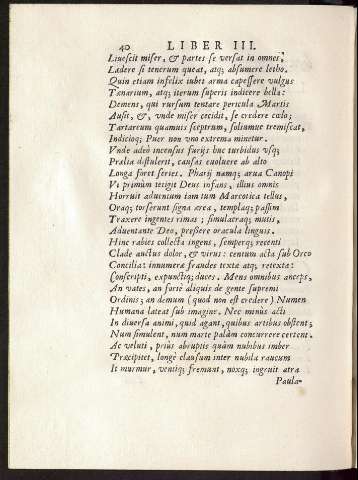 40 LIBER III.
Liuescit miser, & partes se versat in omnes,
Lædere si tenerum queat, atq; absumere letho.
Quin etiam infelix iubet arma capessere vulgus
Tænarium, atq; iterum superis indicere bella:
Demens, qui rursum tentare pericula Martis
Ausit, &, vnde miser cecidit, se credere cœlo;
Tartareum quamuis sceptrum, soliumue tremiscat,
Indicioq; Puer non vno extrema minetur.
Vnde adeò incensus furijs huc turbidus vsq;
Prælia distulerit, causas euoluere ab alto
Longa foret series. Pharij namq; arua Canopi
Vt primùm tetigit Deus infans, illius omnis
Horruit aduentum iam tum Marcotica tellus,
Oraq; torserunt signa ærea, templaq; passim
Traxere ingentes rimas; simulacraq; mutis,
Aduentante Deo, pressere oracula linguis.
Hinc rabies collecta ingens, semperq; recenti
Clade auctus dolor, & virus: centum acta sub Orco
Concilia: innumeræ fraudes textæ atq; retextæ:
Conscripti, expunctiq; duces. Mens omnibus anceps,
An vates, an fortè aliquis de gente supremi
Ordinis; an demum (quod non est credere) Numen
Humana lateat sub imagine. Nec minùs acti
In diuersa animi, quid agant, quibus artibus obstent;
Num simulent, num marte palàm concurrere certent.
Ac veluti, priùs abruptis quàm nubibus imber
Præcipitet, longè clausum inter nubila raucum
It murmur, ventiq; fremunt, noxq; ingruit atra
Paula-